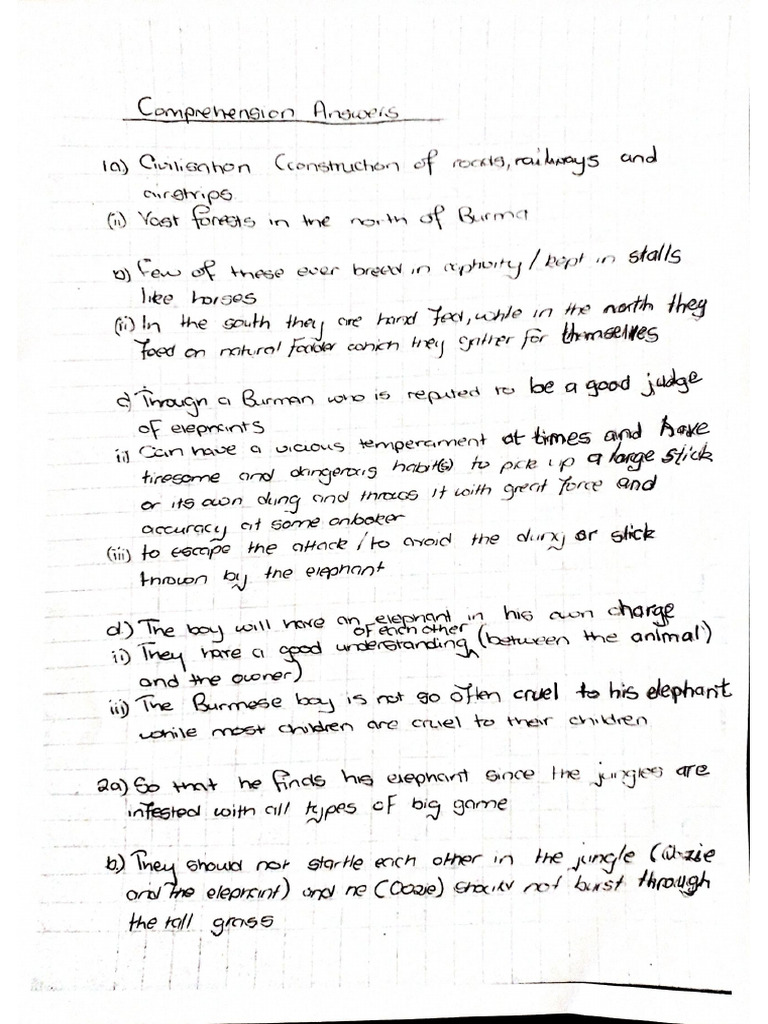 Comprehension Answers
1a) Civilisation (construction of roads, railways and
airstrips
(ii) Vast forests in the north of Burma
b) Few of these ever breed in captivity / kept in stalls
like horses
(ii) In the south they are hand fed, while in the north they
feed on natural fodder which they gather for themselves
c) Through a Burman who is reputed to be a good judge
of elephants
ii) Can have a vicious temperament at times and have
tiresome and dangerous habit(s) to pick up a large stick
or its own dung and throws it with great force and
accuracy at some onlooker
(iii) to escape the attack / to avoid the dung or stick
thrown by the elephant
d.) The boy will have an elephant in his own charge
ii) They have a good understanding of each other (between the animal)
and the owner)
iii) The Burmese boy is not so often cruel to his elephant
while most children are cruel to their children
2a) So that he finds his elephant since the jungles are
infested with all types of big game
b.) They should not startle each other in the jungle (Oozie
and the elephant) and he (Oozie) should not burst through
the tall grass